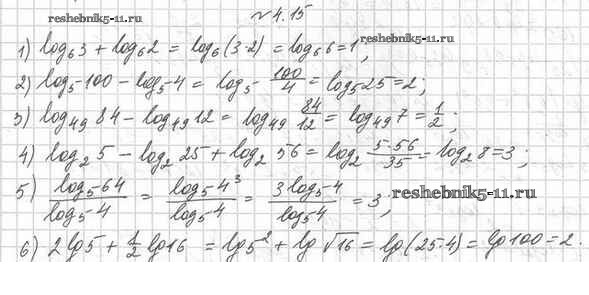 №4.15
reshebnik5-11.ru
reshebnik5-11.ru
1) log₆3 + log₆2 = log₆(3·2) = log₆6 = 1;
2) log₅100 - log₅4 = log₅ 100/4 = log₅25 = 2;
3) log₄₉84 - log₄₉12 = log₄₉ 84/12 = log₄₉7 = 1/2;
4) log₂5 - log₂25 + log₂56 = log₂ 5·56/35 = log₂8 = 3;
5) log₅64/log₅4 = log₅4³/log₅4 = 3log₅4/log₅4 = 3;
reshebnik5-11.ru
6) 2lg5 + 1/2 lg16 = lg5² + lg√16 = lg(25·4) = lg100 = 2.